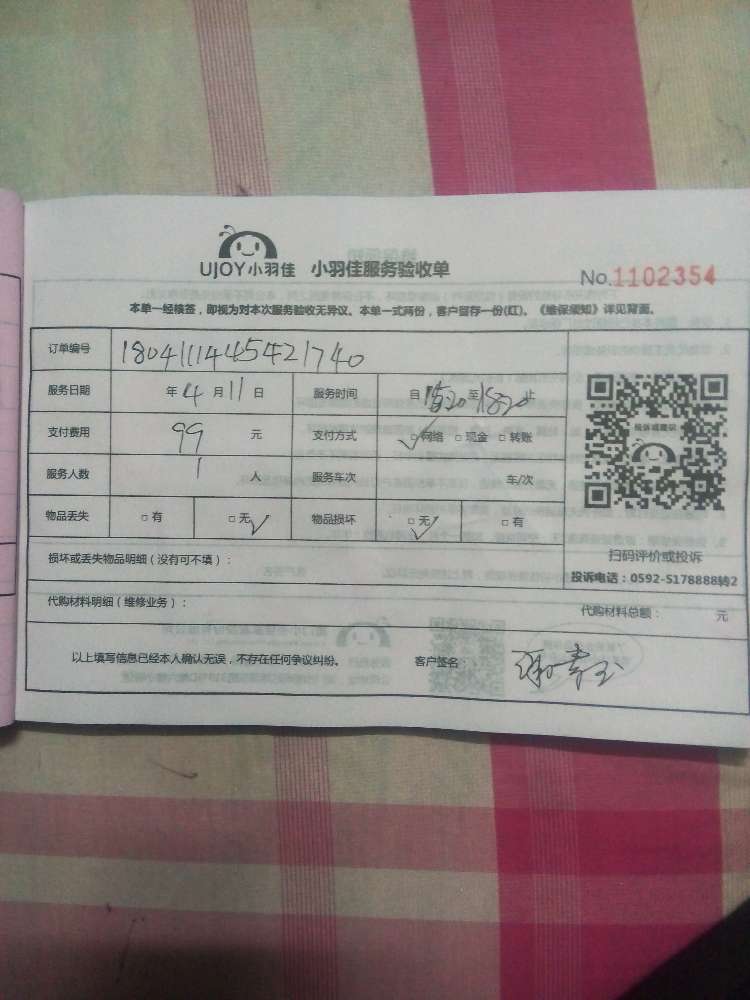 UJOY小羽佳 小羽佳服务验收单
No.1102354
本单一经核签，即视为对本次服务验收无异议。本单一式两份，客户留存一份(红)。《维保须知》详见背面。
订单编号 180411144545421740
服务日期 年4月11日 服务时间 自1520至1820止
支付费用 99 元 支付方式 ✓□网络 □现金 □转账
服务人数 1 人 服务车次 车/次
物品丢失 □有 □无✓ 物品损坏 □无✓ □有
投诉或建议
扫码评价或投诉
投诉电话：0592-5178888转2
损坏或丢失物品明细（没有可不填）：
代购材料明细（维修业务）：
代购材料总额： 元
以上填写信息已经本人确认无误，不存在任何争议纠纷。 客户签名：